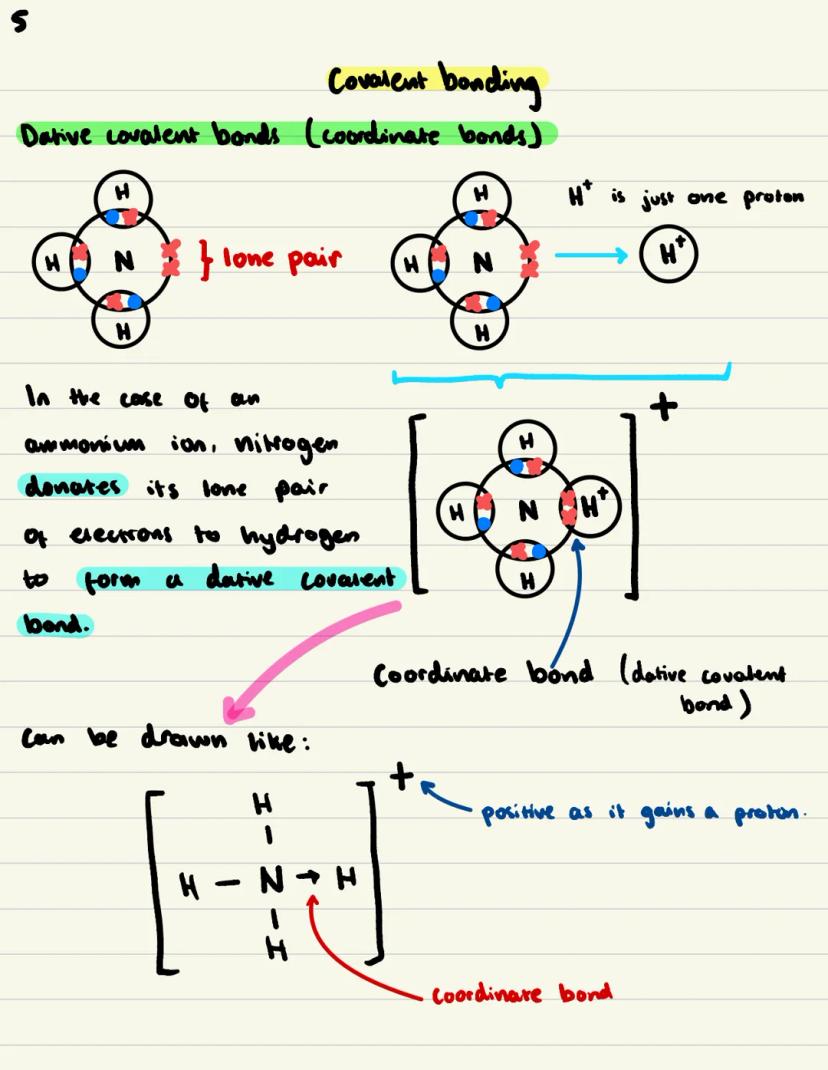 5
Covalent bonding
Dative covalent bonds (coordinate bonds)
H
H N
H
} lone pair
H
H N
H
H⁺ is just one proton
H⁺
In the case of an
ammonium ion, nitrogen
donates its lone pair
of electrons to hydrogen
to form a dative covalent
bond.
[ ]+
H
H N H⁺
H
Coordinate bond (dative covalent
bond)
Can be drawn like:
[ ]+
H
|
H – N → H
|
H
positive as it gains a proton.
coordinate bond